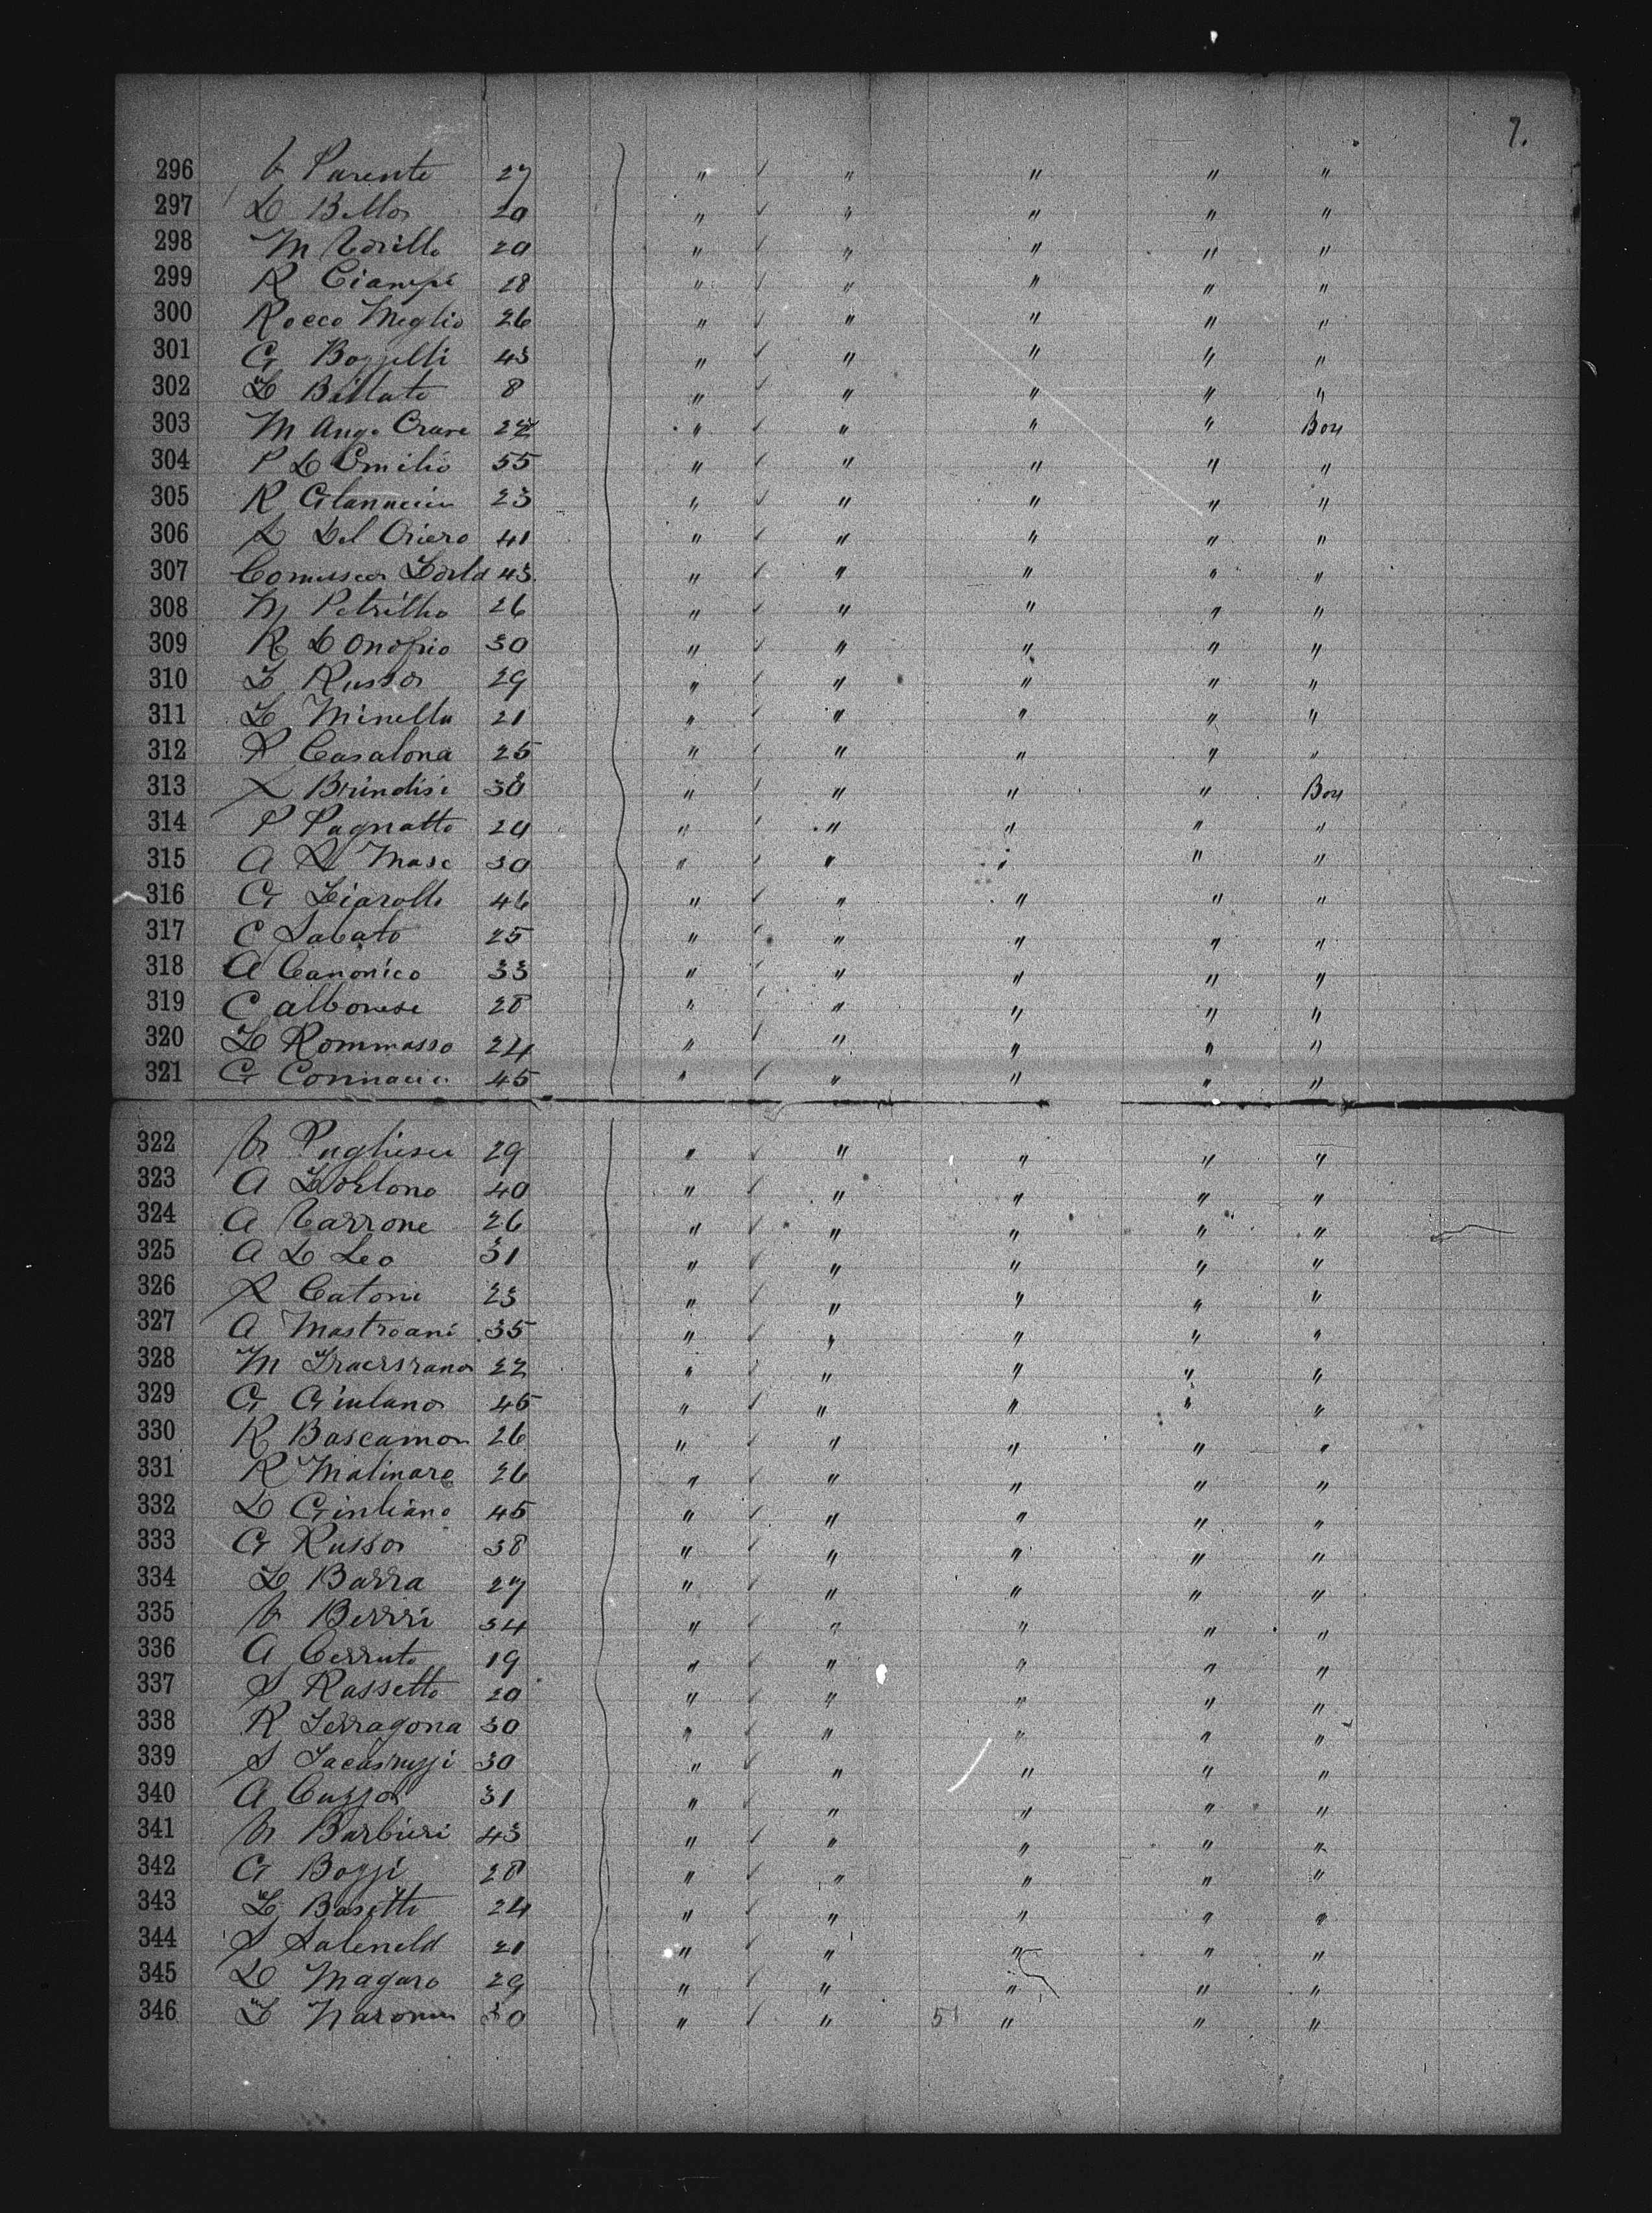 7.
296 V Parente 27 " ✓ " " " "
297 D Bello 20 " ✓ " " " "
298 M Torillo 20 " ✓ " " " "
299 R Ciampi 28 " ✓ " " " "
300 Rocco Meglio 26 " ✓ " " " "
301 G Bozzelli 43 " ✓ " " " "
302 D Billato 8 " ✓ " " " "
303 M Ang. " ✓ " " " Box
304 P D Emilio 55 " ✓ " " " "
305 R 23 " ✓ " " " "
306 L Del 41 " ✓ " " " "
307 43 " ✓ " " " "
308 M Petrillo 26 " ✓ " " " "
309 R D Onofrio 30 " ✓ " " " "
310 F Russo 29 " ✓ " " " "
311 F Minella 21 " ✓ " " " "
312 P Casalona 25 " ✓ " " " "
313 L Brindisi 30 " ✓ " " " Box
314 P Pagnatto 24 " ✓ " " " "
315 A D Mase 30 " ✓ " " " "
316 G 46 " ✓ " " " "
317 C Sabato 25 " ✓ " " " "
318 A Canonico 33 " ✓ " " " "
319 C albonese 28 " ✓ " " " "
320 F Rommasso 24 " ✓ " " " "
321 G 45 " ✓ " " " "
322 V 29 " ✓ " " " "
323 A 40 " ✓ " " " "
324 A Tarrone 26 " ✓ " " " "
325 A D Leo 31 " ✓ " " " "
326 R Catone 23 " ✓ " " " "
327 A Mastroani 35 " ✓ " " " "
328 M 22 " ✓ " " " "
329 G Giulano 45 " ✓ " " " "
330 R Bascamon 26 " ✓ " " " "
331 R Malinaro 26 " ✓ " " " "
332 D Giuliano 45 " ✓ " " " "
333 G Russo 38 " ✓ " " " "
334 F Barra 27 " ✓ " " " "
335 V Berrri 34 " ✓ " " " "
336 A Cerruto 19 " ✓ " " " "
337 S Rassetto 20 " ✓ " " " "
338 R Terragona 30 " ✓ " " " "
339 S 30 " ✓ " " " "
340 A Cuzzo 31 " ✓ " " " "
341 V Barbieri 43 " ✓ " " " "
342 G Bozzi 28 " ✓ " " " "
343 F Basetti 24 " ✓ " " " "
344 S 21 " ✓ " " " "
345 D Magaro 29 " ✓ " " " "
346 F 30 " ✓ " 51 " " "